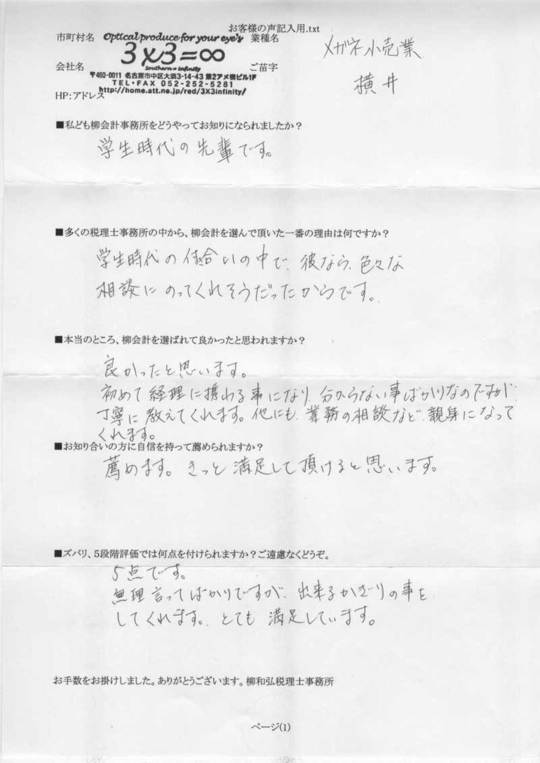 お客様の声記入用.txt
市町村名 Optical produce for your eye's 業種名 メガネ小売業
3x3=∞
Southern=infinity
会社名 ご苗字 横井
〒460-0011 名古屋市中区大須3-14-43 第2アメ横ビル1F
TEL・FAX 052-252-5281
HP:アドレス http://home.att.ne.jp/red/3X3infinity/
■私ども柳会計事務所をどうやってお知りになられましたか?
学生時代の先輩です。
■多くの税理士事務所の中から、柳会計を選んで頂いた一番の理由は何ですか?
学生時代の付合いの中で、彼なら、色々な
相談にのってくれそうだったからです。
■本当のところ、柳会計を選ばれて良かったと思われますか?
良かったと思います。
初めて経理に携わる事になり、分からない事ばかりなのですが、
丁寧に教えてくれます。他にも、業務の相談など、親身になって
くれます。
■お知り合いの方に自信を持って薦められますか?
薦めます。きっと満足して頂けると思います。
■ズバリ、5段階評価では何点を付けられますか?ご遠慮なくどうぞ。
5点です。
無理言ってばかりですが、出来るかぎりの事を
してくれます。とても満足しています。
お手数をお掛けしました。ありがとうございます。柳和弘税理士事務所
ページ(1)